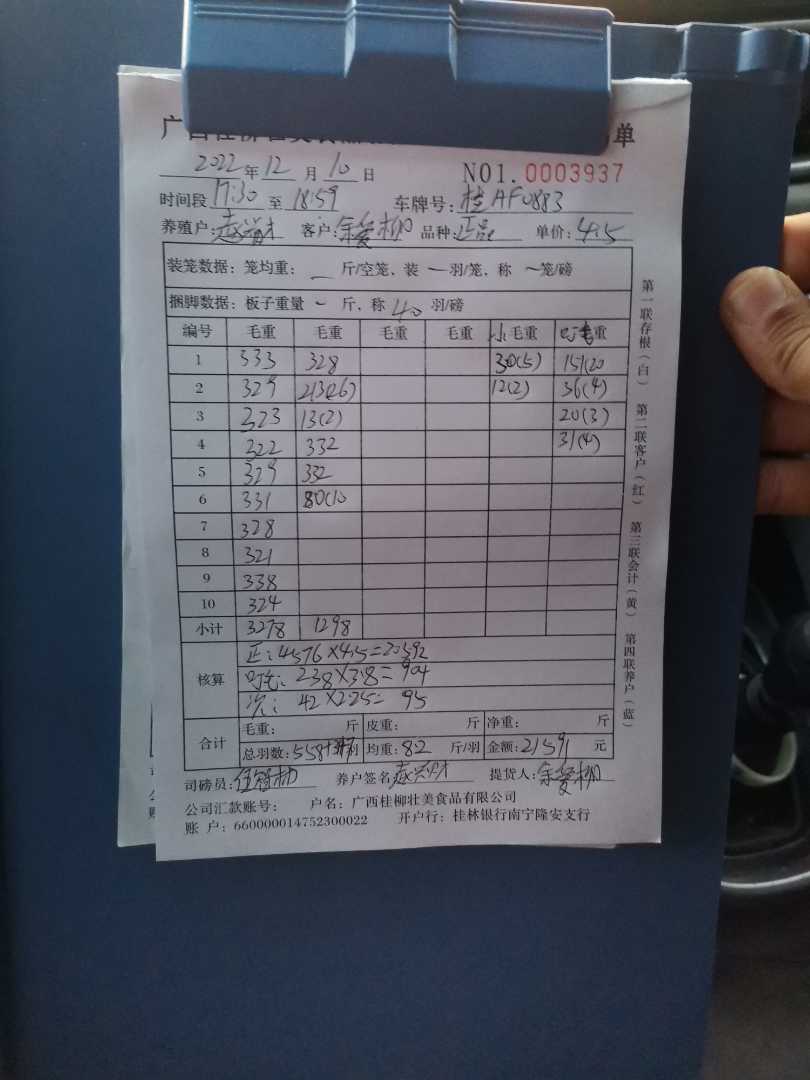 单
2022年12月10日 NO1.0003937
时间段17:30至18:59 车牌号:桂AF0883
养殖户: 客户:余爱柳 品种:正品 单价:4.5
装笼数据:笼均重: — 斤/空笼、装 一羽/笼、称 一笼/磅
捆脚数据:板子重量 — 斤、称 40 羽/磅
编号 毛重 毛重 毛重 毛重 小毛重 毛重
1 333 328 30(5) 151(20
2 329 213(26) 12(2) 36(4)
3 323 13(2) 20(3)
4 322 332 31(4)
5 329 332
6 331 80(10
7 328
8 321
9 338
10 324
小计 3278 1298
核算 正:4576×4.5=20592
238×3.8=904
次:42×2.25=95
合计 毛重: 斤 皮重: 斤 净重: 斤
总羽数:558+ 均重:8.2 斤/羽 金额:21591 元
司磅员: 养户签名 提货人:余爱柳
公司汇款账号: 户名:广西桂柳壮美食品有限公司
账 户:660000014752300022 开户行:桂林银行南宁隆安支行
第一联存根(白) 第二联客户(红) 第三联会计(黄) 第四联养户(蓝)